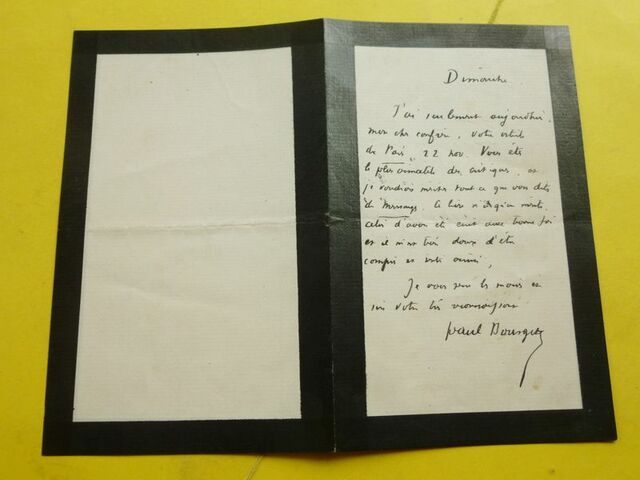 Dimanche
J'ai seulement aujourd'hui,
mon cher confrère, votre article
de Paris, 22 nov. Vous êtes
le plus aimable des critiques, et
je voudrais mériter tout ce que vous dites
de Mensonges. Ce livre n'a qu'un mérite,
celui d'avoir été écrit avec bonne foi
et il m'est très doux d'être
compris et senti ainsi,
Je vous serre les mains et
suis votre très reconnaissant
Paul Bourget